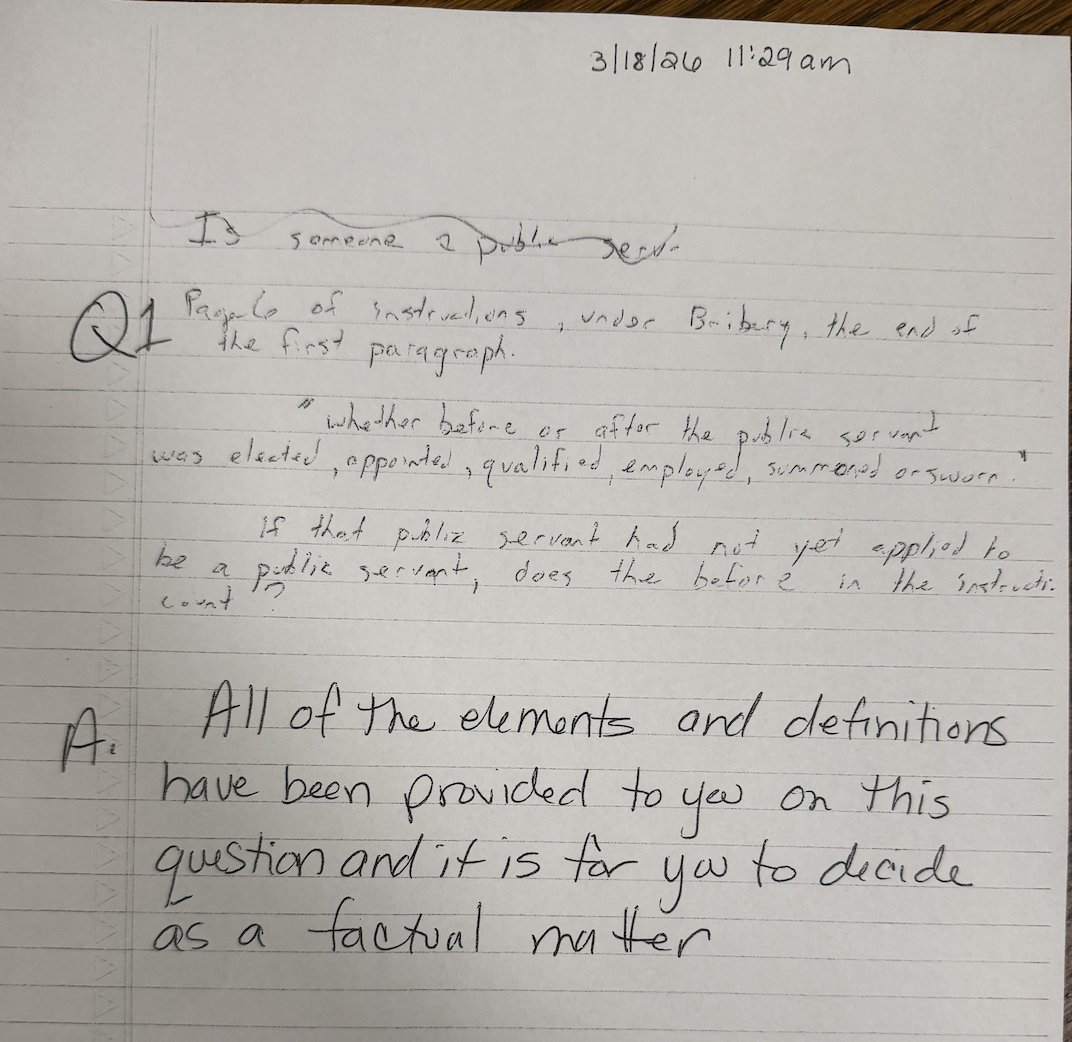 3/18/26 11:29am
Is someone a public serv-
Q1 Page 6 of instructions, under Bribery, the end of
the first paragraph.
"whether before or after the public servant
was elected, appointed, qualified, employed, summoned or sworn."
If that public servant had not yet applied to
be a public servant, does the before in the instructi.
count?
A. All of the elements and definitions
have been provided to you on this
question and it is for you to decide
as a factual matter